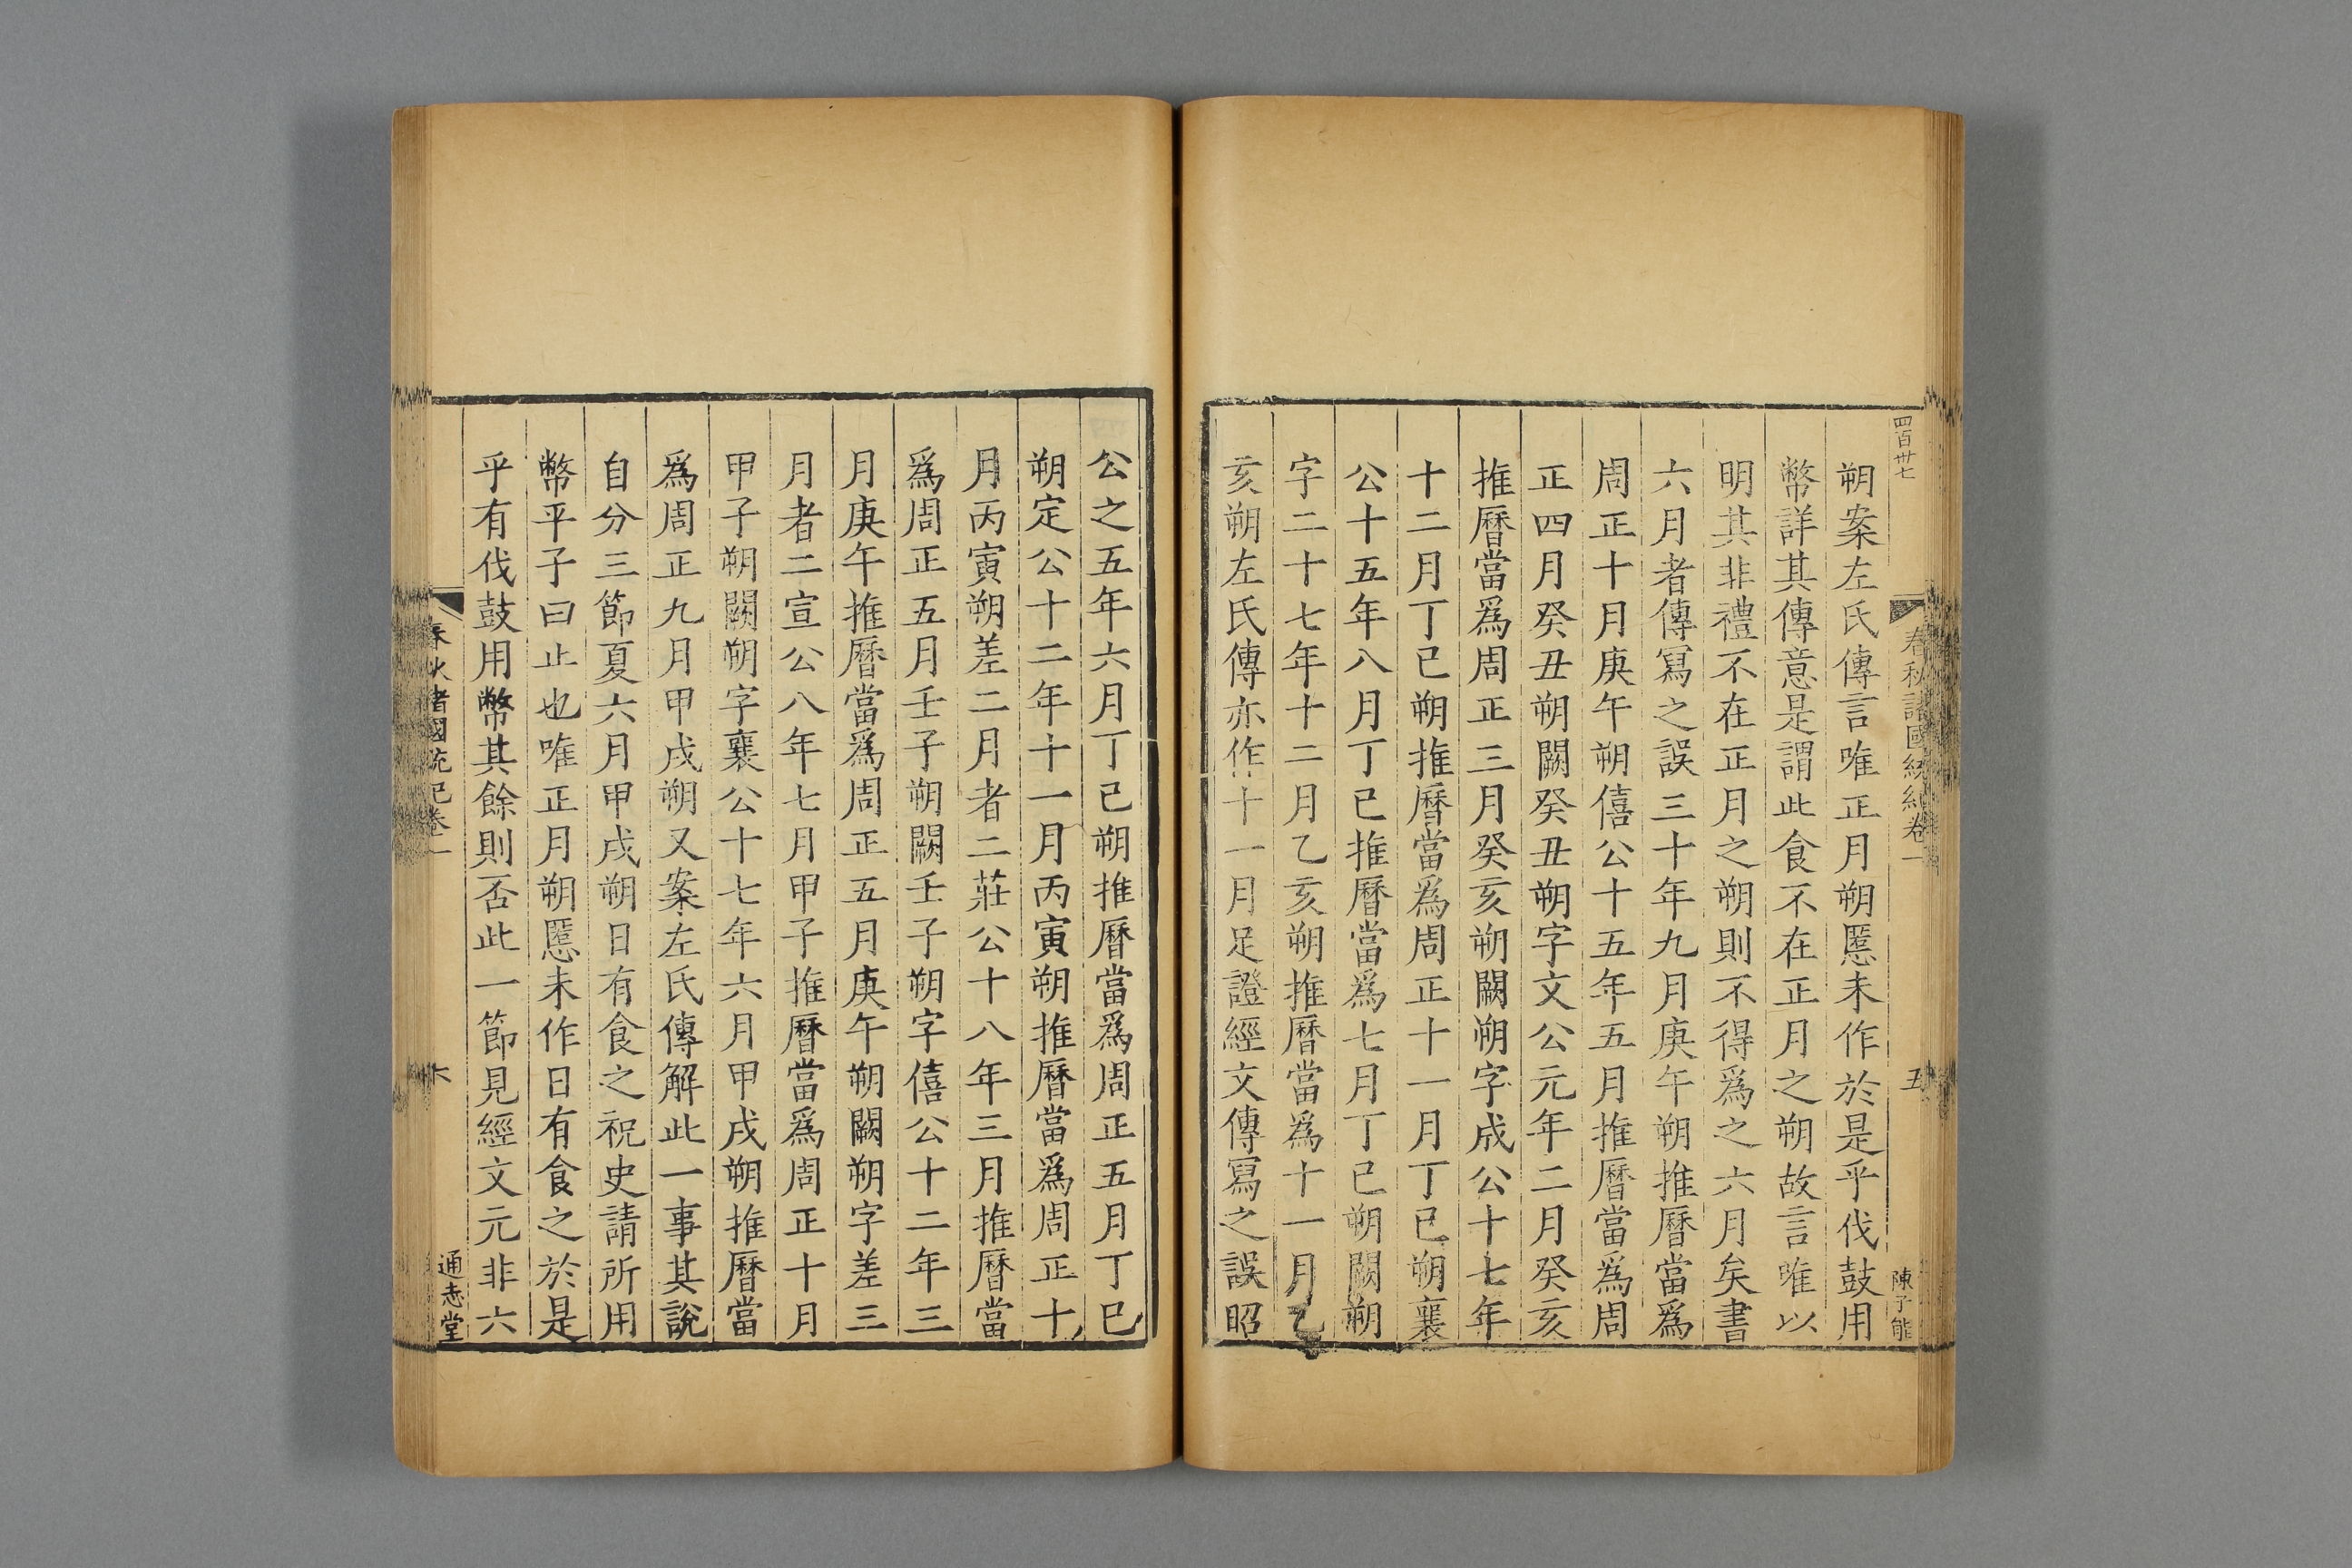 四百卅七
春秋諸國統紀卷一
五
陳子能
朔案左氏傳言唯正月朔慝未作於是乎伐鼓用
幣詳其傳意是謂此食不在正月之朔故言唯以
明其非禮不在正月之朔則不得爲之六月矣書
六月者傳冩之誤三十年九月庚午朔推曆當爲
周正十月庚午朔僖公十五年五月推曆當爲周
正四月癸丑朔闕癸丑朔字文公元年二月癸亥
推曆當爲周正三月癸亥朔闕朔字成公十七年
十二月丁巳朔推曆當爲周正十一月丁巳朔襄
公十五年八月丁巳推曆當爲七月丁巳朔闕朔
字二十七年十二月乙亥朔推曆當爲十一月乙
亥朔左氏傳亦作十一月足證經文傳寫之誤昭
公之五年六月丁巳朔推曆當爲周正五月丁巳
朔定公十二年十一月丙寅朔推曆當爲周正十
月丙寅朔差二月者二莊公十八年三月推曆當
爲周正五月壬子朔闕壬子朔字僖公十二年三
月庚午推曆當爲周正五月庚午朔闕朔字差三
月者二宣公八年七月甲子推曆當爲周正十月
甲子朔闕朔字襄公十七年六月甲戌朔推曆當
爲周正九月甲戌朔又案左氏傳解此一事其說
自分三節夏六月甲戌朔日有食之祝史請所用
幣平子曰止也唯正月朔慝未作日有食之於是
乎有伐鼓用幣其餘則否此一節見經文元非六
春秋諸國統紀卷一
通志堂